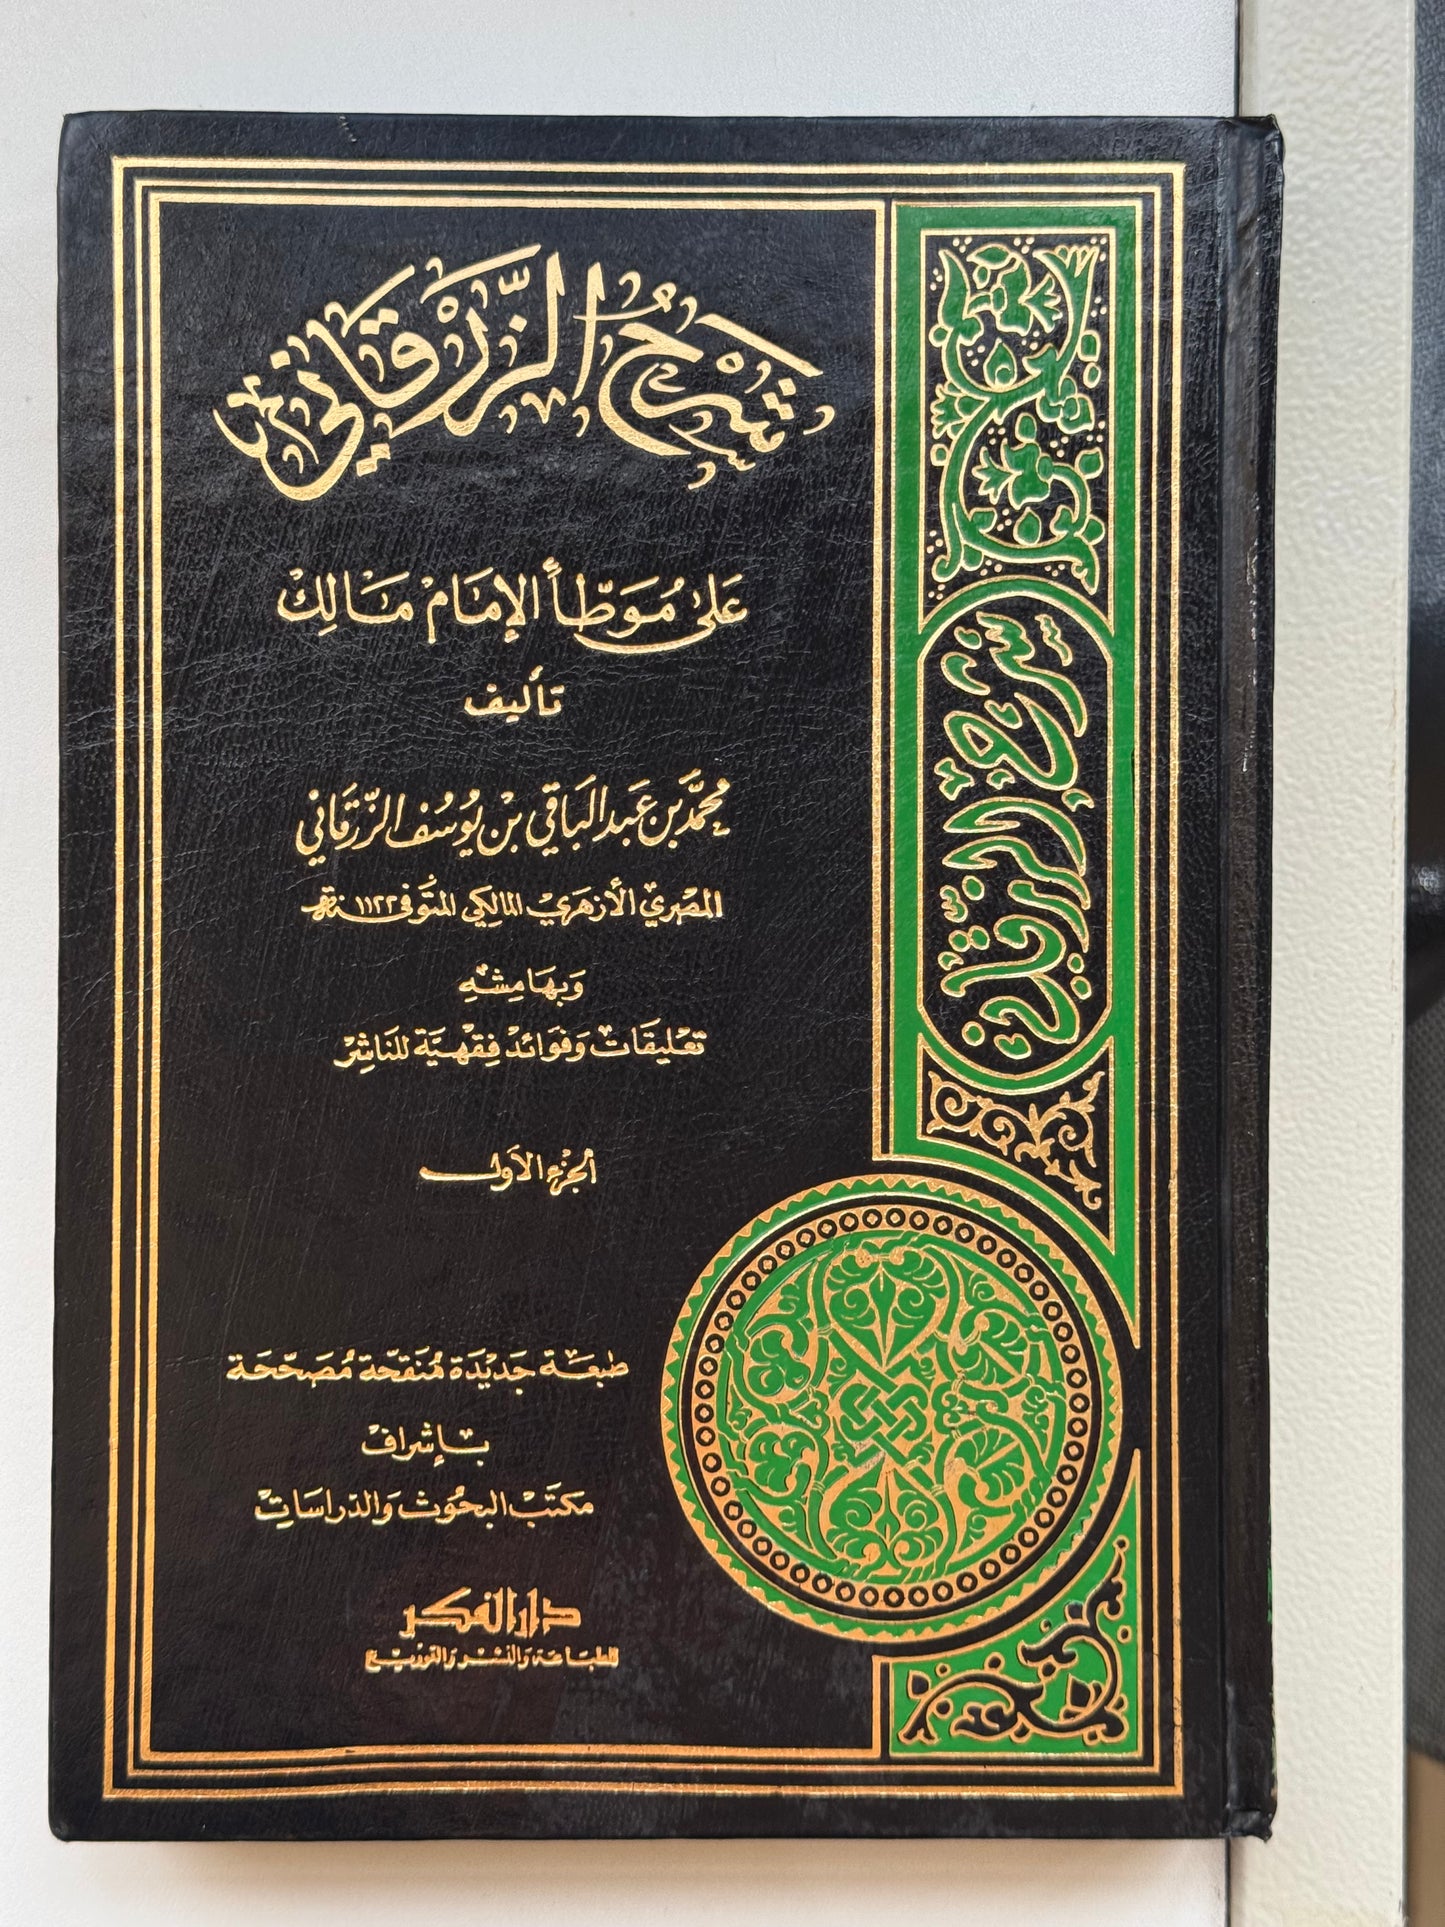 شَرْحُ الزَّرْقَانِي
عَلَى مُوَطَّأ الإِمَام مَالِك
تأليف
محمَّد بن عَبد البَاقي بْن يُوسُف الزَّرقَاني
المصْري الأزهَري المالِكي المتَوفى سنة ١١٢٢هـ
وَبهَامِشهِ
تعْليقَات وَفوَائدْ فِقْهيَّة للنَاشِر
الجزء الأوَل
طبعَة جَديْدَة مُنَقحّة مُصَحّحَة
بإشراف
مَكتَبْ البحُوث وَالدرَاسَات
دار الفكر
للطبَاعَة وَالنشر وَالتوزيع
شرح الزرقاني